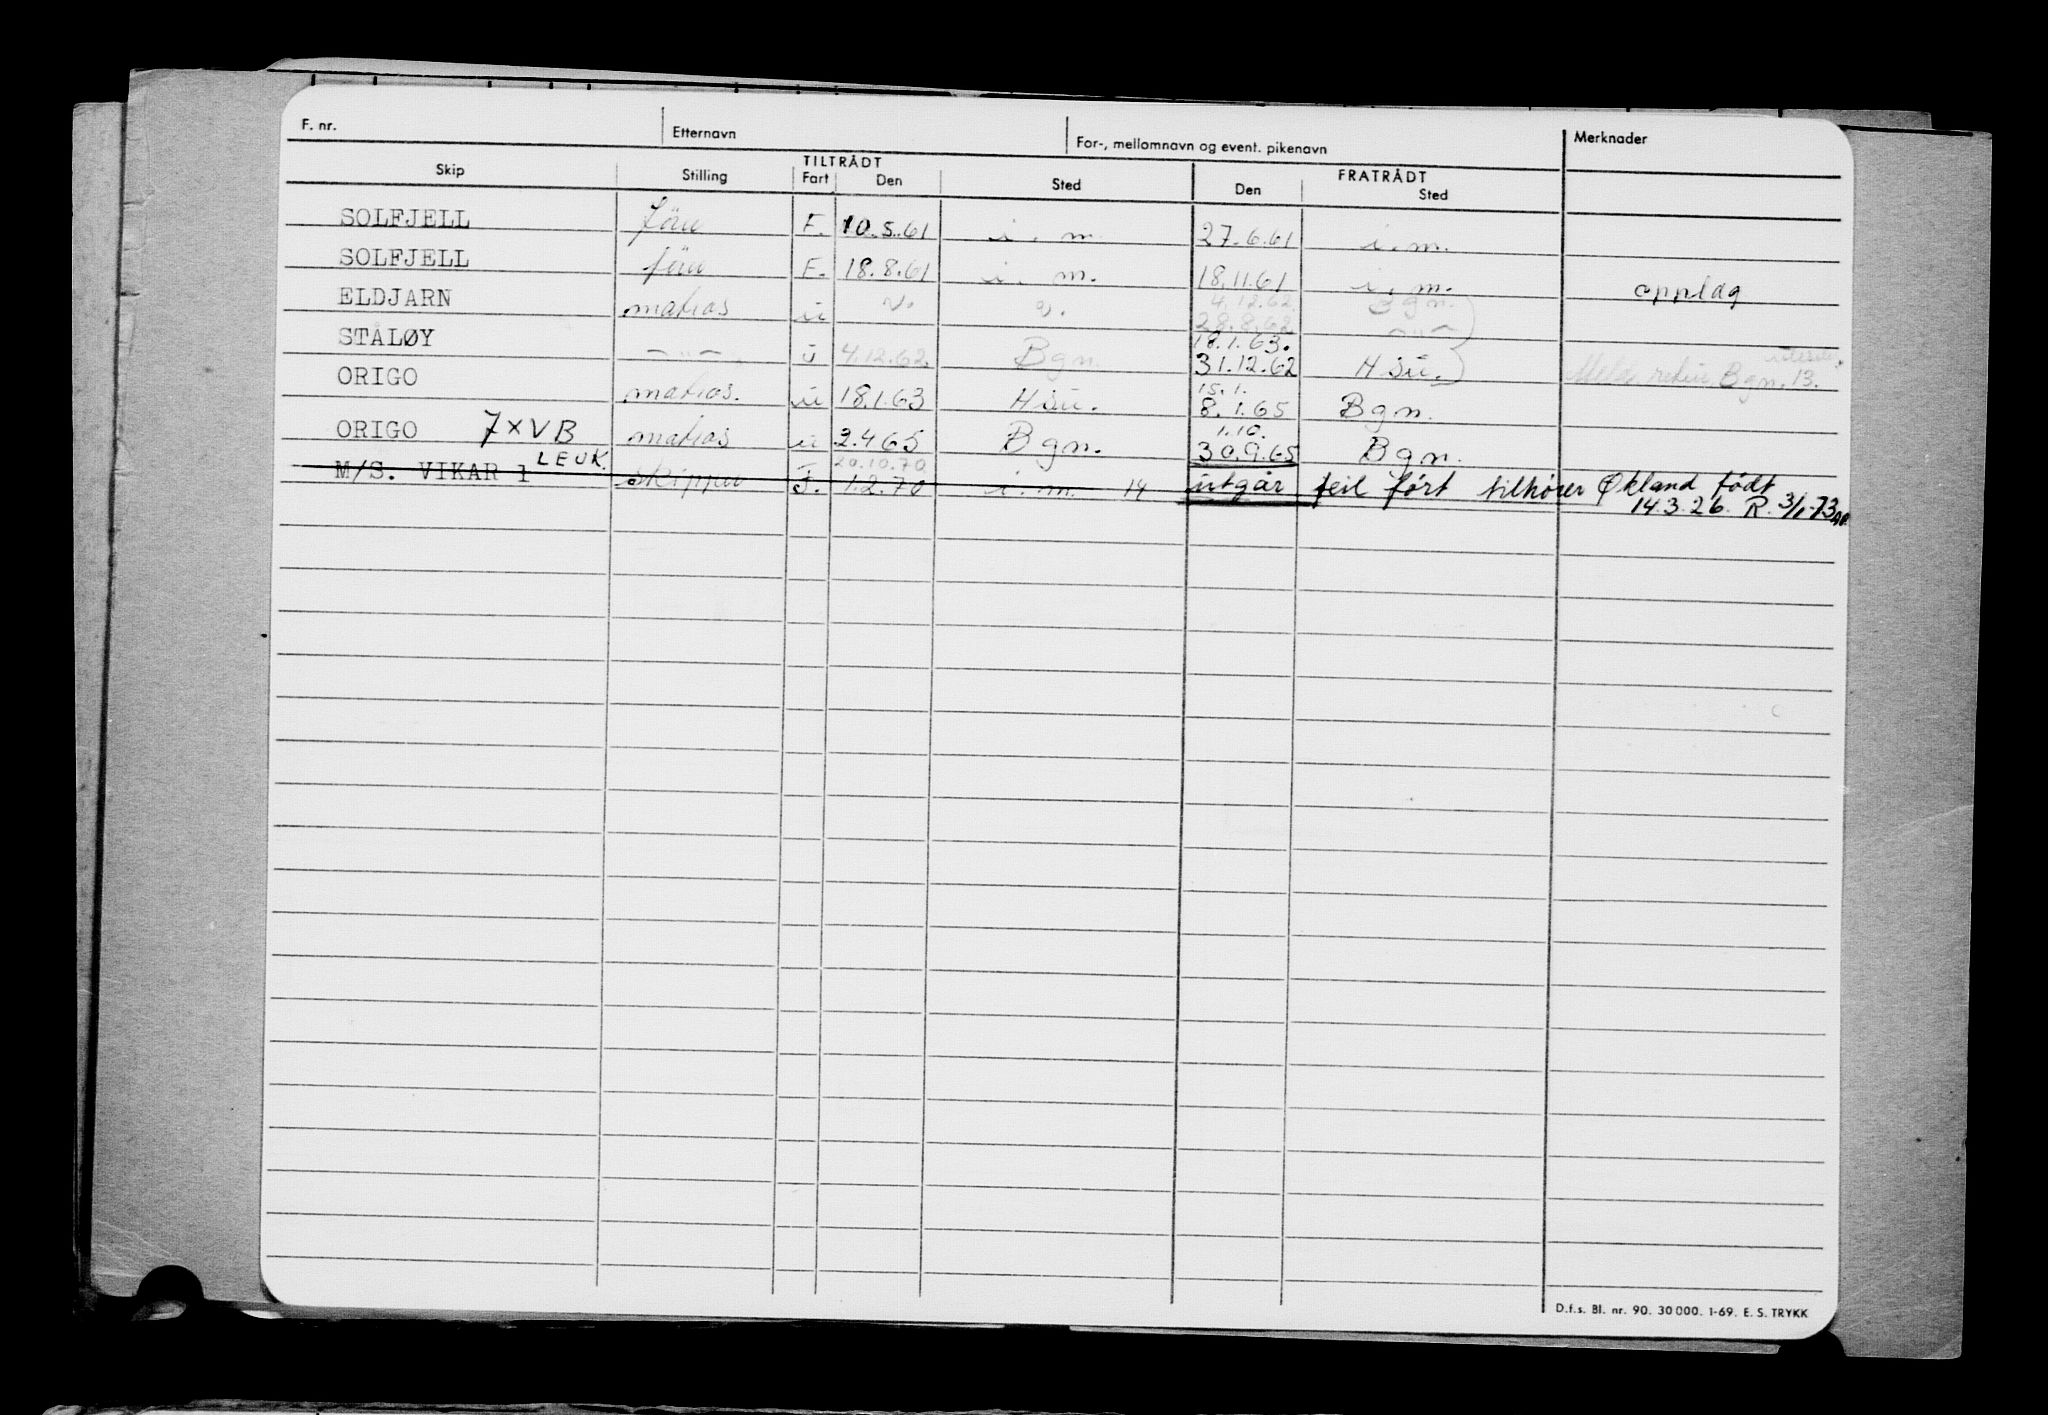 F. nr. Etternavn For-, mellomnavn og event. pikenavn Merknader
TILTRÅDT FRATRÅDT
Skip Stilling Fart Den Sted Den Sted
SOLFJELL F. 10.5.61 i.m. 27.6.61 i.m.
SOLFJELL F. 18.8.61 i.m. 18.11.61 i.m. opplag
4.12.62 Bgn.
ELDJARN matros ü 28.8.62 -"-
18.1.63.
STÅLØY -"- ü 4.12.62. Bgn. 31.12.62 Hsü. Bgn. 13.
15.1.
ORIGO matros. ü 18.1.63 Hsü. 8.1.65 Bgn.
1.10.
ORIGO 7×VB matros ü 2.4.65 Bgn. 30.9.65 Bgn.
LEUK. 20.10.70
M/S. VIKAR 1 skipper I. 1.2.70 i.m. 14 utgår feil ført tilhører Økland født
14.3.26. R. 3/1-73
D.f.s. Bl. nr. 90. 30 000. 1-69. E. S. TRYKK